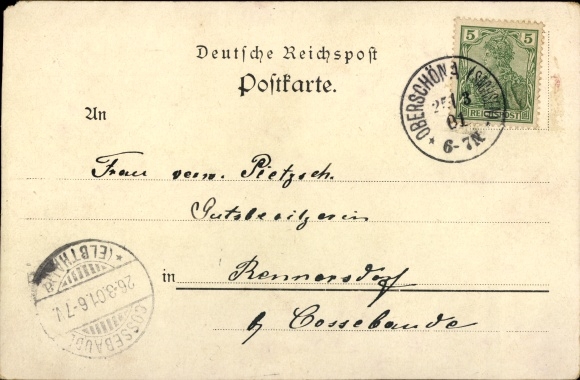 Deutsche Reichspost
Postkarte.
5 5
REICHSPOST
OBERSCHÖNA
25 3
01
* 6-7N *
An
Frau verw. Pietzsch.
Gutsbesitzerin
in Rennersdorf
b/ Cossebaude
COSSEBAUDE
26.3.01.6-7V.
* (ELBTHAL)